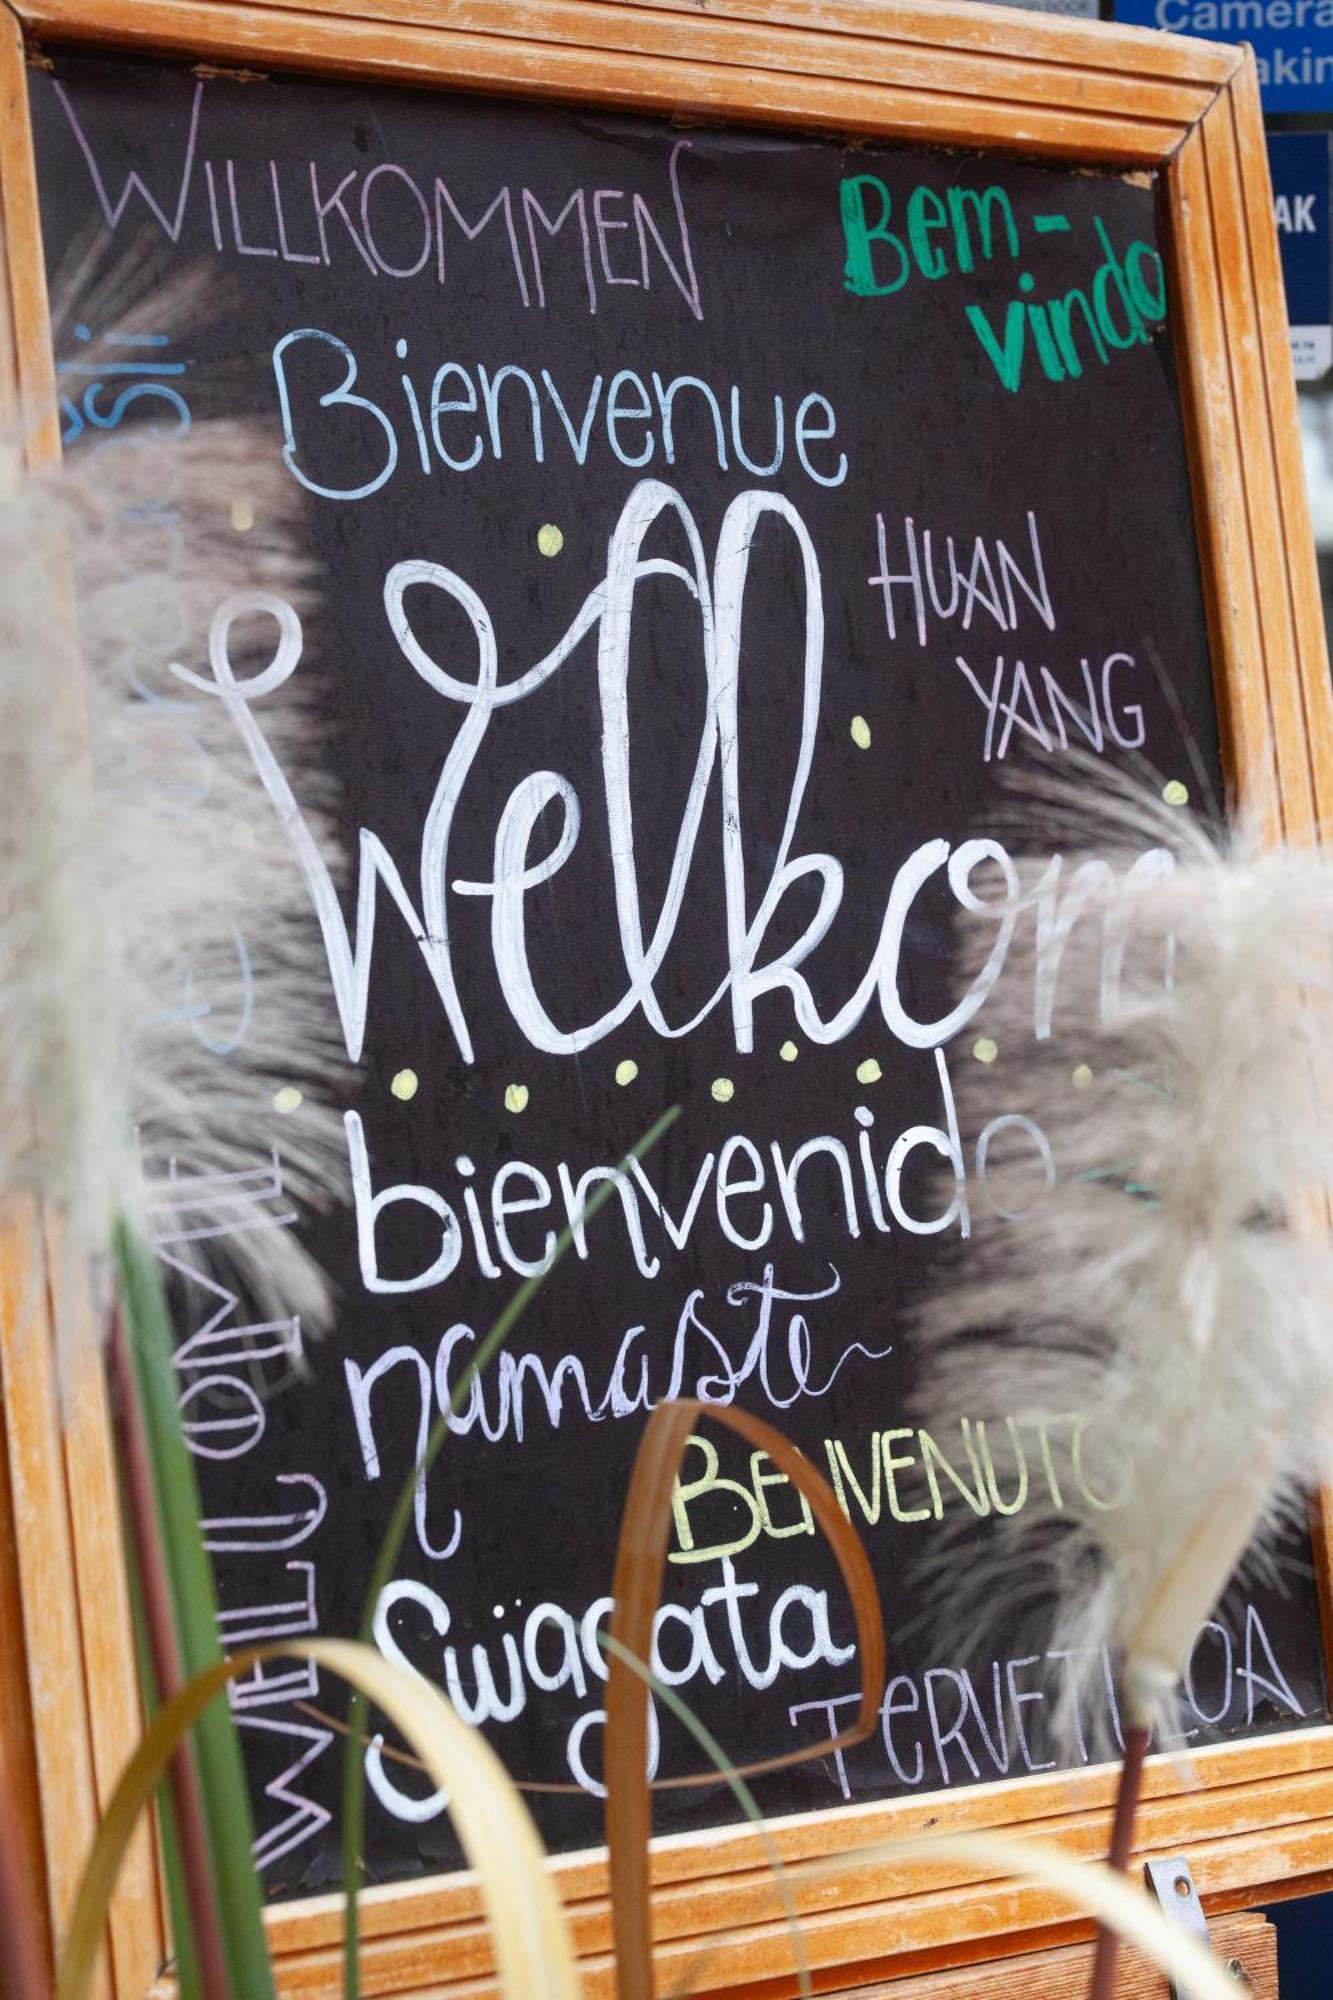 Camera
WILLKOMMEN
Bem-
vindo
Bienvenue
HUAN
YANG
Welkom
bienvenido
namaste
BENVENUTO
Swagata
TERVETULOA
WELCOME